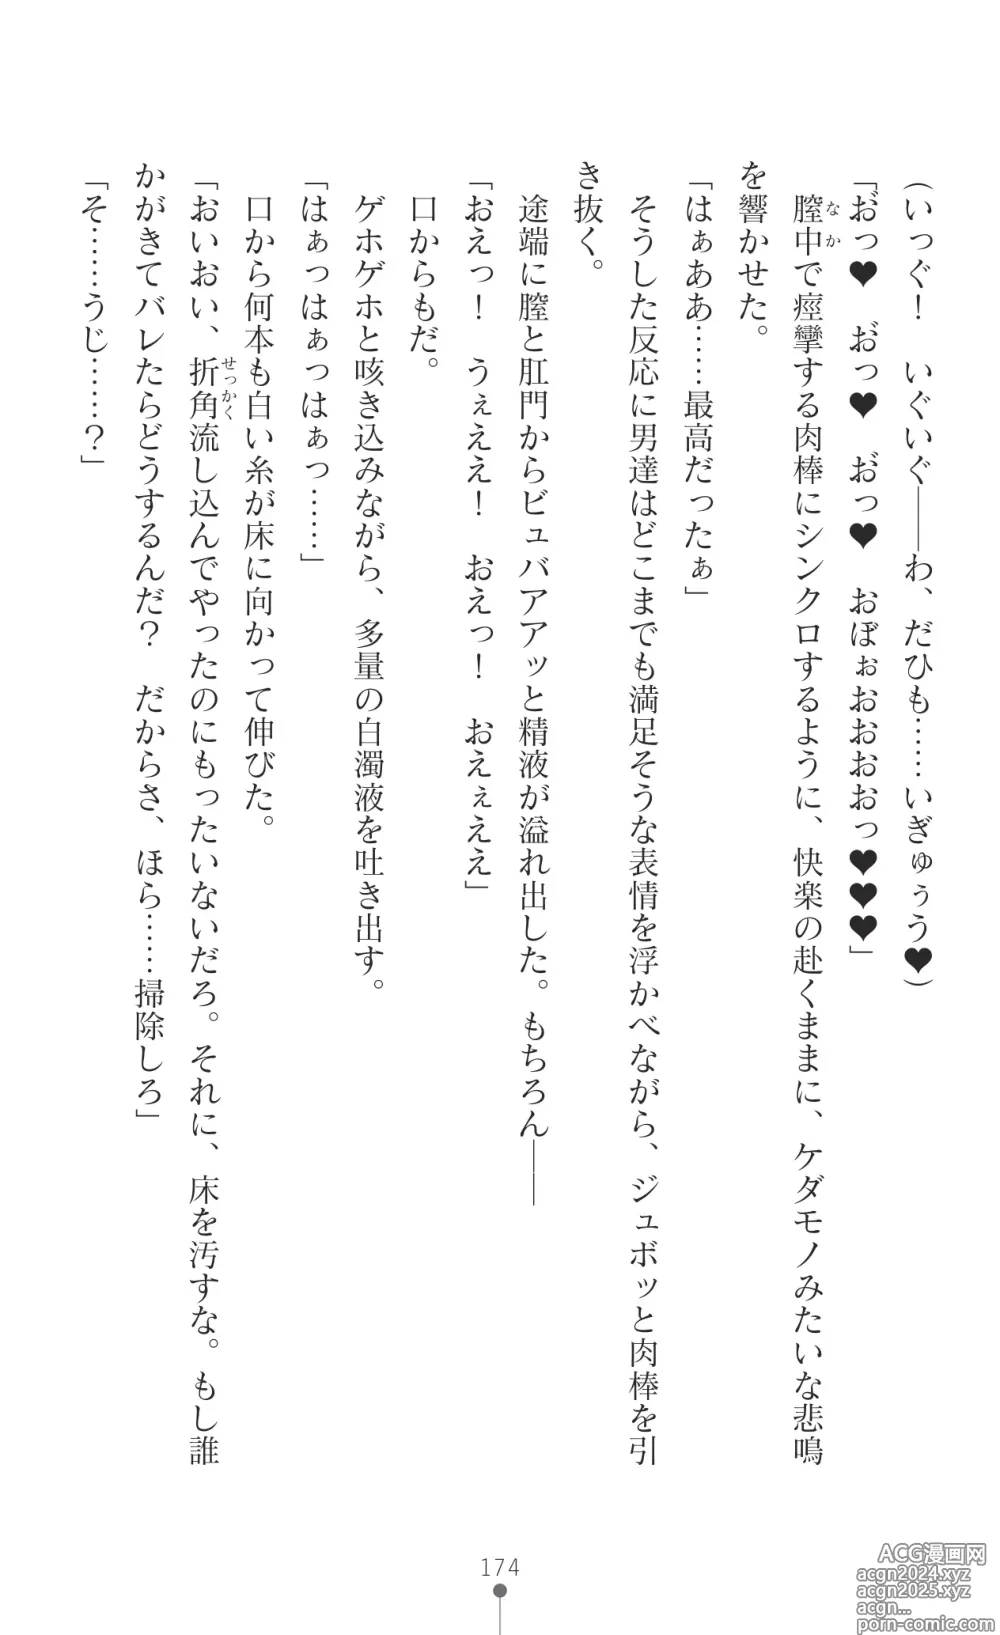 (いっぐ!　いぐいぐ――わ、だひも……いぎゅぅう♥)
「お゛っ♥　お゛っ♥　お゛っ♥　おぼぉおおおおっ♥♥♥」
膣中で痙攣する肉棒にシンクロするように、快楽の赴くままに、ケダモノみたいな悲鳴
なか
を響かせた。
「はぁああ……最高だったぁ」
そうした反応に男達はどこまでも満足そうな表情を浮かべながら、ジュボッと肉棒を引
き抜く。
途端に膣と肛門からビュバアアッと精液が溢れ出した。もちろん――
「おえっ!　うぇええ!　おえっ!　おえぇええ」
口からもだ。
ゲホゲホと咳き込みながら、多量の白濁液を吐き出す。
「はぁっはぁっはぁっ……」
口から何本も白い糸が床に向かって伸びた。
「おいおい、折角流し込んでやったのにもったいないだろ。それに、床を汚すな。もし誰
せっかく
かがきてバレたらどうするんだ?　だからさ、ほら……掃除しろ」
「そ……うじ……?」
174
ACG漫画网
acgn2024.xyz
acgn2025.xyz
acgn...
porn-comic.com